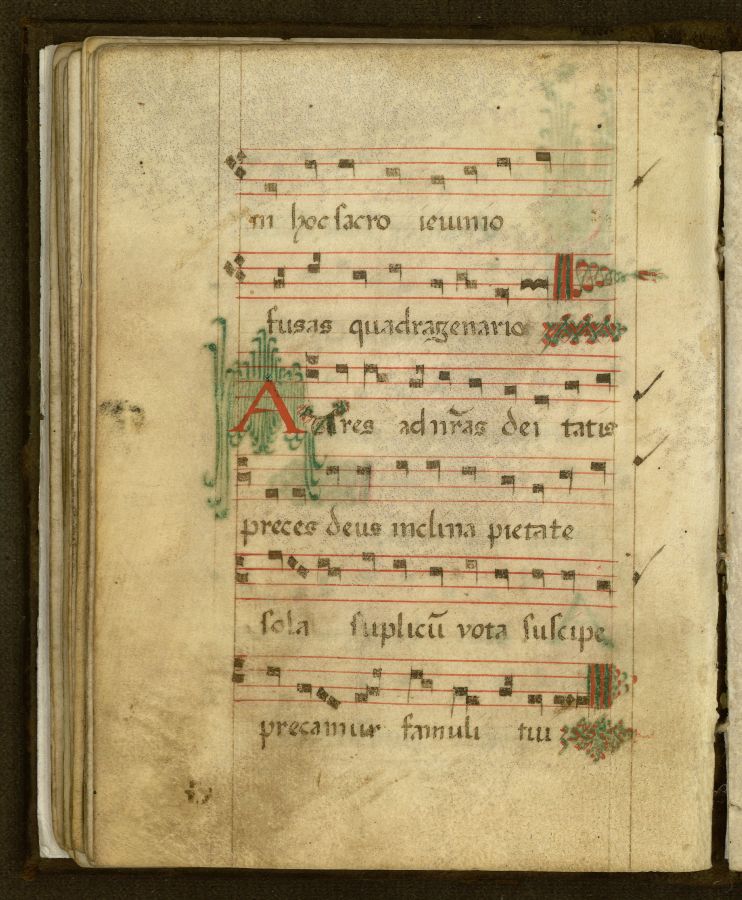 in hoc sacro ieiunio
fusas quadragenario
Aures ad nr̃as dei tatis
preces deus inclina pietate
sola suplicū vota suscipe
precamur famuli tui